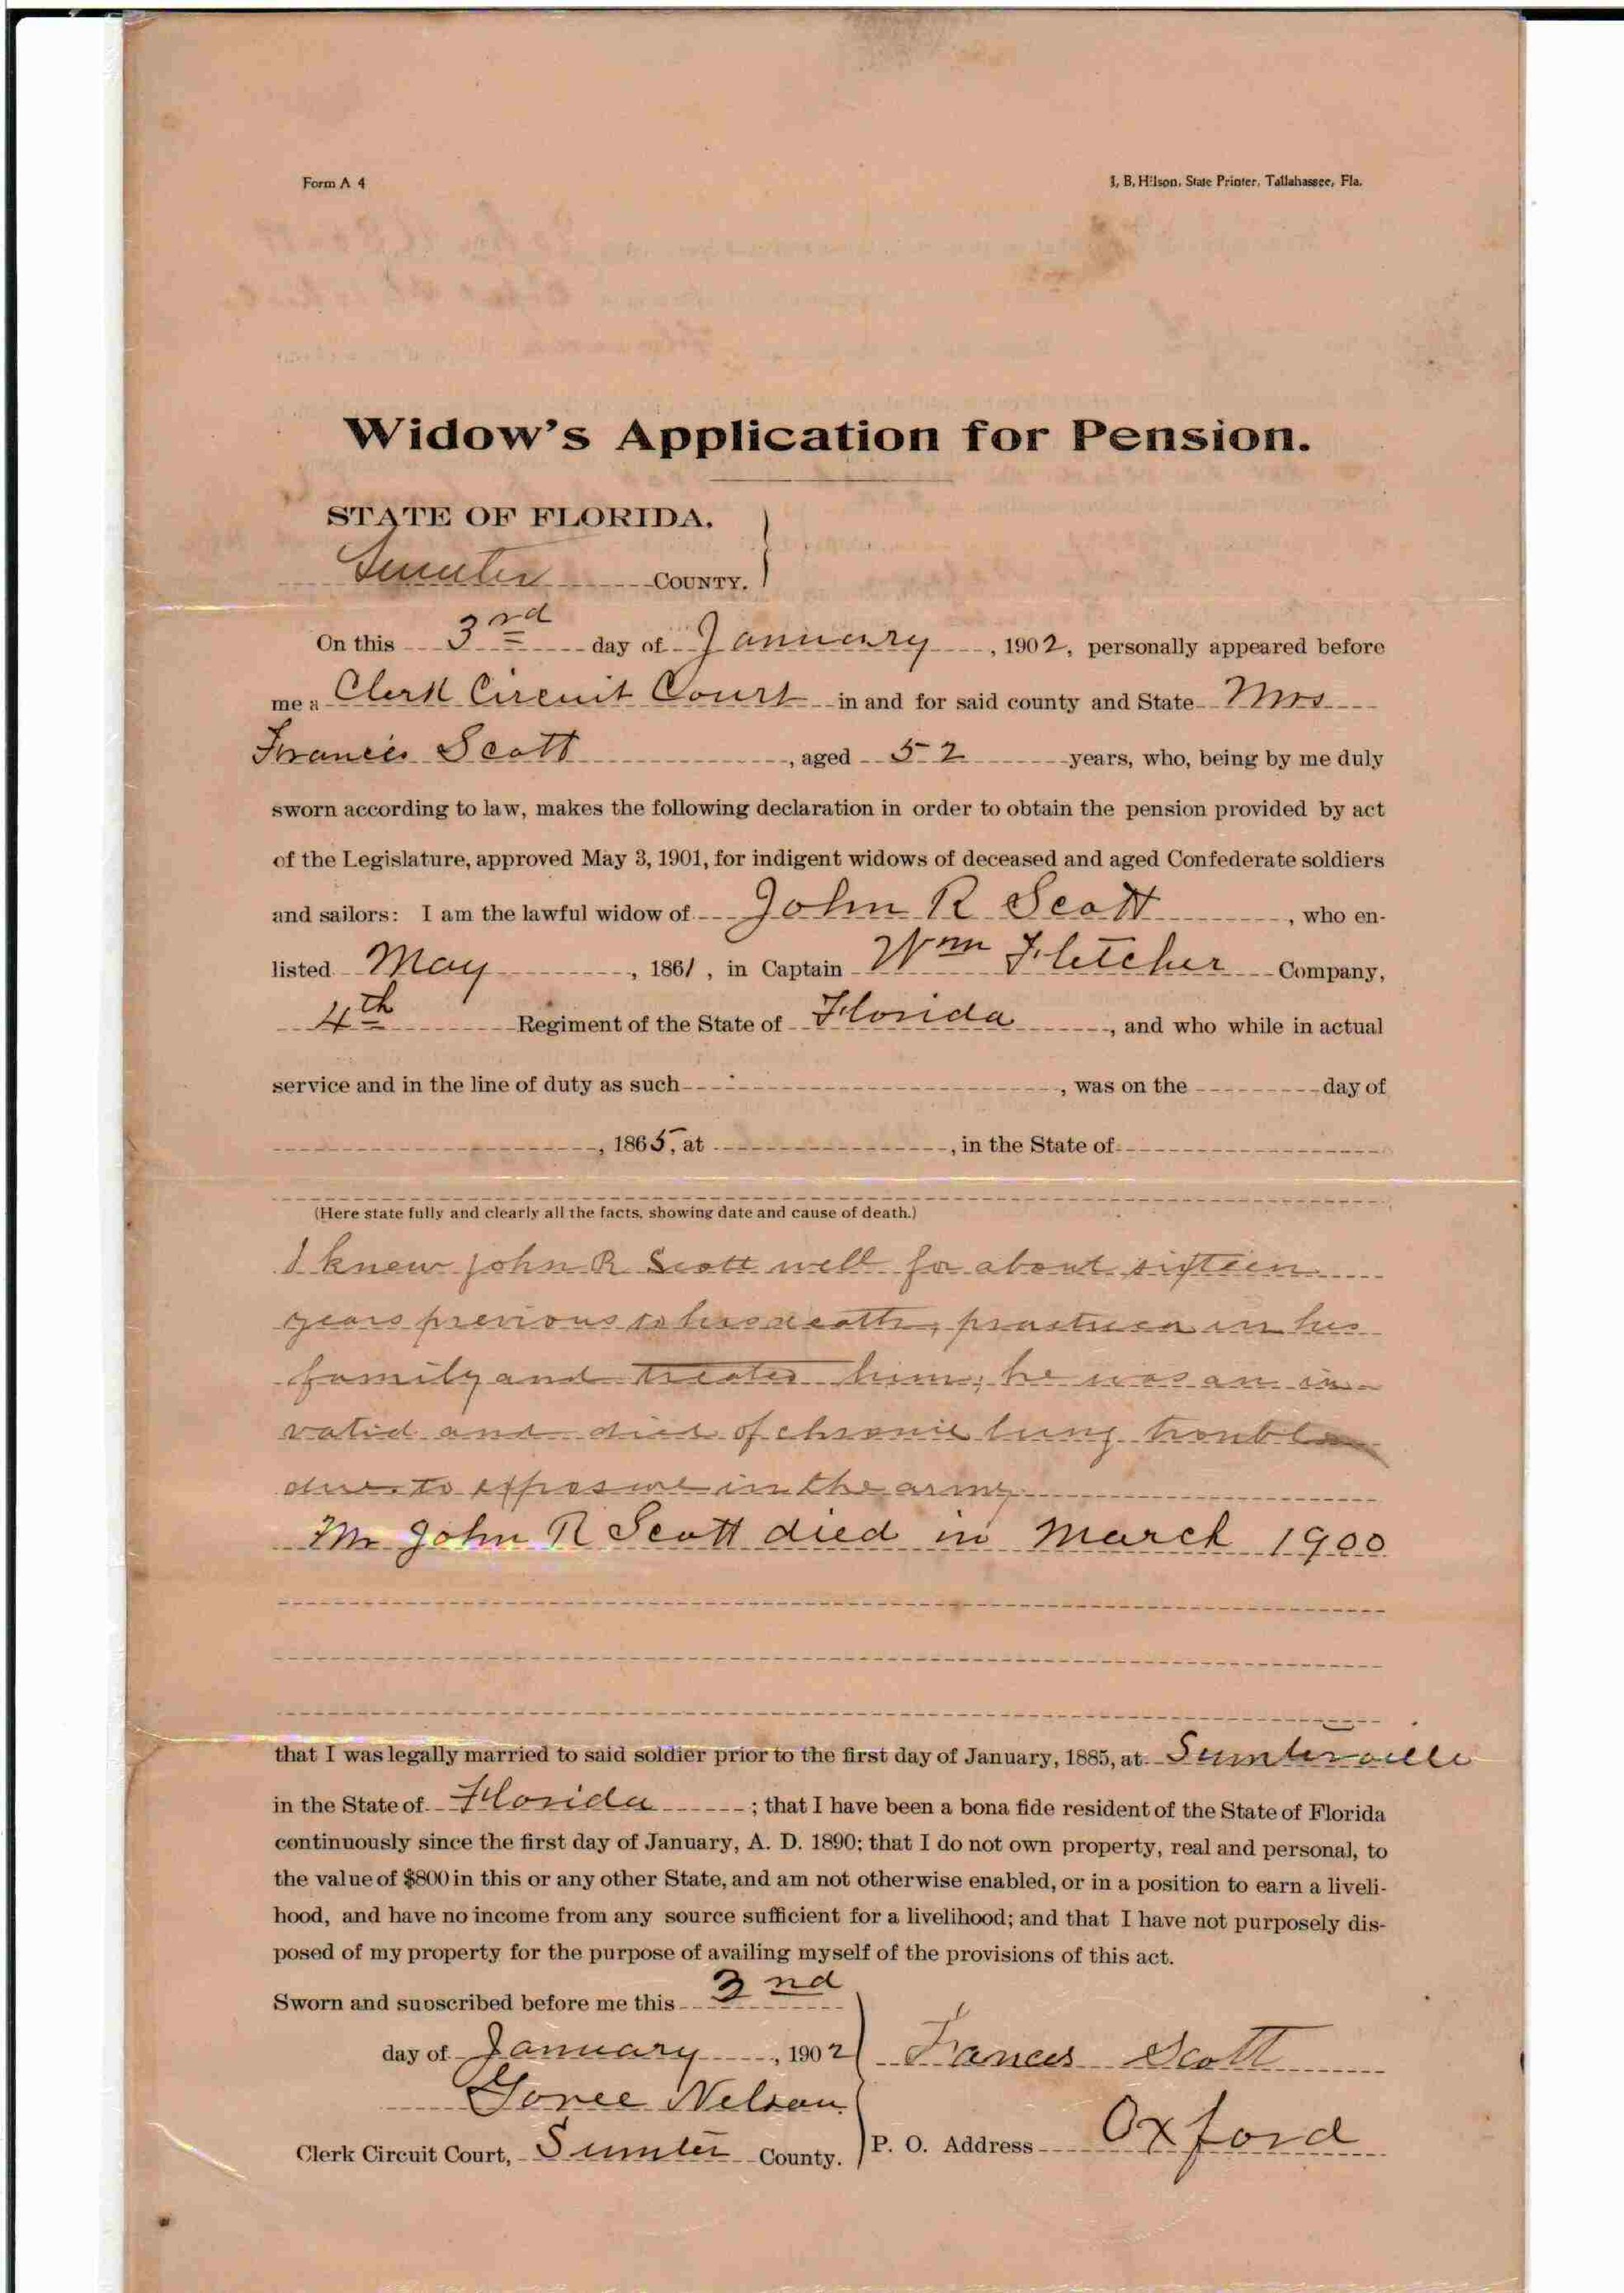 Form A 4
I. B. Hilson, State Printer, Tallahassee, Fla.
Widow's Application for Pension.
STATE OF FLORIDA.
Sumter COUNTY.
On this 3rd day of January, 1902, personally appeared before
me a Clerk Circuit Court in and for said county and State Mrs
Francis Scott, aged 52 years, who, being by me duly
sworn according to law, makes the following declaration in order to obtain the pension provided by act
of the Legislature, approved May 3, 1901, for indigent widows of deceased and aged Confederate soldiers
and sailors: I am the lawful widow of John R Scott, who en-
listed May, 1861, in Captain Wm Fletcher Company,
4th Regiment of the State of Florida, and who while in actual
service and in the line of duty as such, was on the day of
, 1865, at, in the State of
(Here state fully and clearly all the facts, showing date and cause of death.)
I knew John R Scott well for about sixteen
years previous to his death, practiced in his
family and treated him; he was an in-
valid and died of chronic lung trouble
due to exposure in the army
Mr John R Scott died in March 1900
that I was legally married to said soldier prior to the first day of January, 1885, at Sumterville
in the State of Florida; that I have been a bona fide resident of the State of Florida
continuously since the first day of January, A. D. 1890; that I do not own property, real and personal, to
the value of $800 in this or any other State, and am not otherwise enabled, or in a position to earn a liveli-
hood, and have no income from any source sufficient for a livelihood; and that I have not purposely dis-
posed of my property for the purpose of availing myself of the provisions of this act.
Sworn and suoscribed before me this 3nd
day of January, 1902 Frances Scott
Goree Nelson
Clerk Circuit Court, Sumter County. P. O. Address Oxford